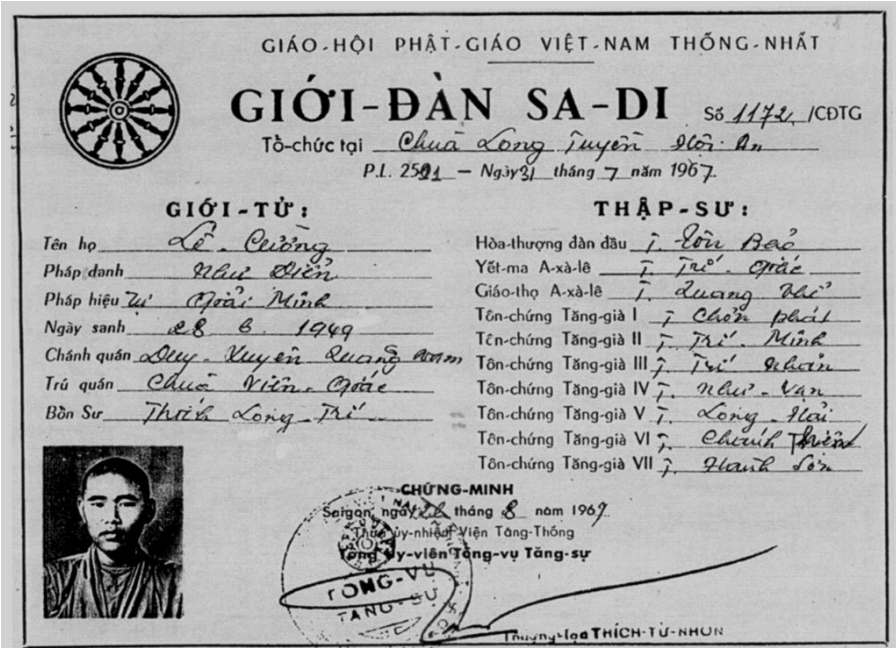 GIÁO-HỘI PHẬT-GIÁO VIỆT-NAM THỐNG-NHẤT
GIỚI-ĐÀN SA-DI
Số 1172 /CĐTG
Tổ-chức tại Chuà Long Tuyền Hội-An
P.L. 2511 — Ngày 31 tháng 7 năm 1967
GIỚI-TỬ:
Tên họ Lê-Cường
Pháp danh Như Điển
Pháp hiệu Tự Giải Minh
Ngày sanh 28 6 1949
Chánh quán Duy-Xuyên Quảng Nam
Trú quán Chuà Viên-Giác
Bổn Sư Thích Long-Trí
THẬP-SƯ:
Hòa-thượng đàn đầu T. Tôn Bảo
Yết-ma A-xà-lê T. Trí-Giác
Giáo-thọ A-xà-lê T. Quang Thể
Tôn-chứng Tăng-già I T. Chơn phát
Tôn-chứng Tăng-già II T. Trí-Minh
Tôn-chứng Tăng-già III T. Trí Nhãn
Tôn-chứng Tăng-già IV T. Như-Vạn
Tôn-chứng Tăng-già V T. Long-Hải
Tôn-chứng Tăng-già VI T. Chánh
Tôn-chứng Tăng-già VII T. Hành Sơn
CHỨNG-MINH
Saigon, ngày tháng 8 năm 1967
Thừa ủy-nhiệm Viện Tăng-Thống
Tổng ủy-viên Tăng-vụ Tăng-sự
TỔNG-VỤ
TĂNG-SỰ
Thượng-tọa THÍCH-TỪ-NHƠN